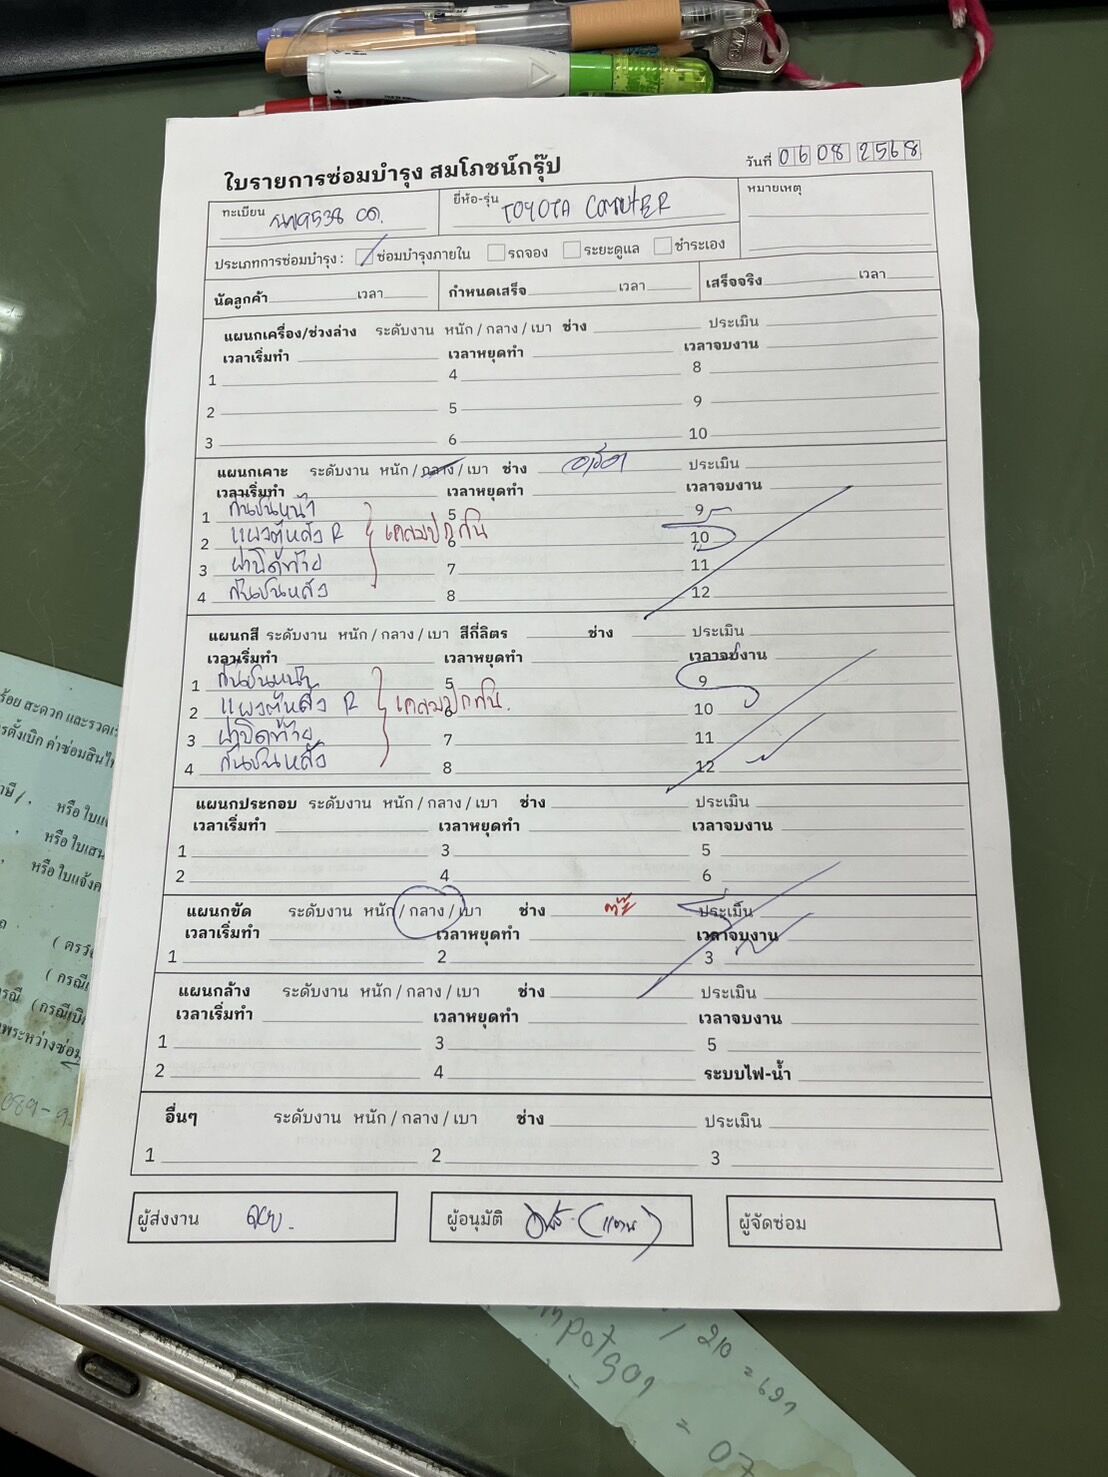 ใบรายการซ่อมบำรุง สมโภชน์กรุ๊ป
วันที่ 06 08 2568
ทะเบียน
ยี่ห้อ-รุ่น TOYOTA COMMUTER
หมายเหตุ
ประเภทการซ่อมบำรุง : ซ่อมบำรุงภายใน รถจอง ระยะดูแล ชำระเอง
นัดลูกค้า เวลา กำหนดเสร็จ เวลา เสร็จจริง เวลา
แผนกเครื่อง/ช่วงล่าง ระดับงาน หนัก / กลาง / เบา ช่าง ประเมิน
เวลาเริ่มทำ เวลาหยุดทำ เวลาจบงาน
1 4 8
2 5 9
3 6 10
แผนกเคาะ ระดับงาน หนัก / กลาง / เบา ช่าง ประเมิน
เวลาเริ่มทำ เวลาหยุดทำ เวลาจบงาน
1 กันชนหน้า 5 9
2 แผงตู้หลัง R เคลมปกติ 6 10
3 ฝาปิดท้าย 7 11
4 กันชนหลัง 8 12
แผนกสี ระดับงาน หนัก / กลาง / เบา สีกี่ลิตร ช่าง ประเมิน
เวลาเริ่มทำ เวลาหยุดทำ เวลาจบงาน
1 กันชนหน้า 5 9
2 แผงตู้หลัง R เคลมปกติ 6 10
3 ฝาปิดท้าย 7 11
4 กันชนหลัง 8 12
แผนกประกอบ ระดับงาน หนัก / กลาง / เบา ช่าง ประเมิน
เวลาเริ่มทำ เวลาหยุดทำ เวลาจบงาน
1 3 5
2 4 6
แผนกขัด ระดับงาน หนัก / กลาง / เบา ช่าง ประเมิน
เวลาเริ่มทำ เวลาหยุดทำ เวลาจบงาน
1 2 3
แผนกล้าง ระดับงาน หนัก / กลาง / เบา ช่าง ประเมิน
เวลาเริ่มทำ เวลาหยุดทำ เวลาจบงาน
1 3 5
2 4 ระบบไฟ-น้ำ
อื่นๆ ระดับงาน หนัก / กลาง / เบา ช่าง ประเมิน
1 2 3
ผู้ส่งงาน ผู้อนุมัติ (แทน) ผู้จัดซ่อม